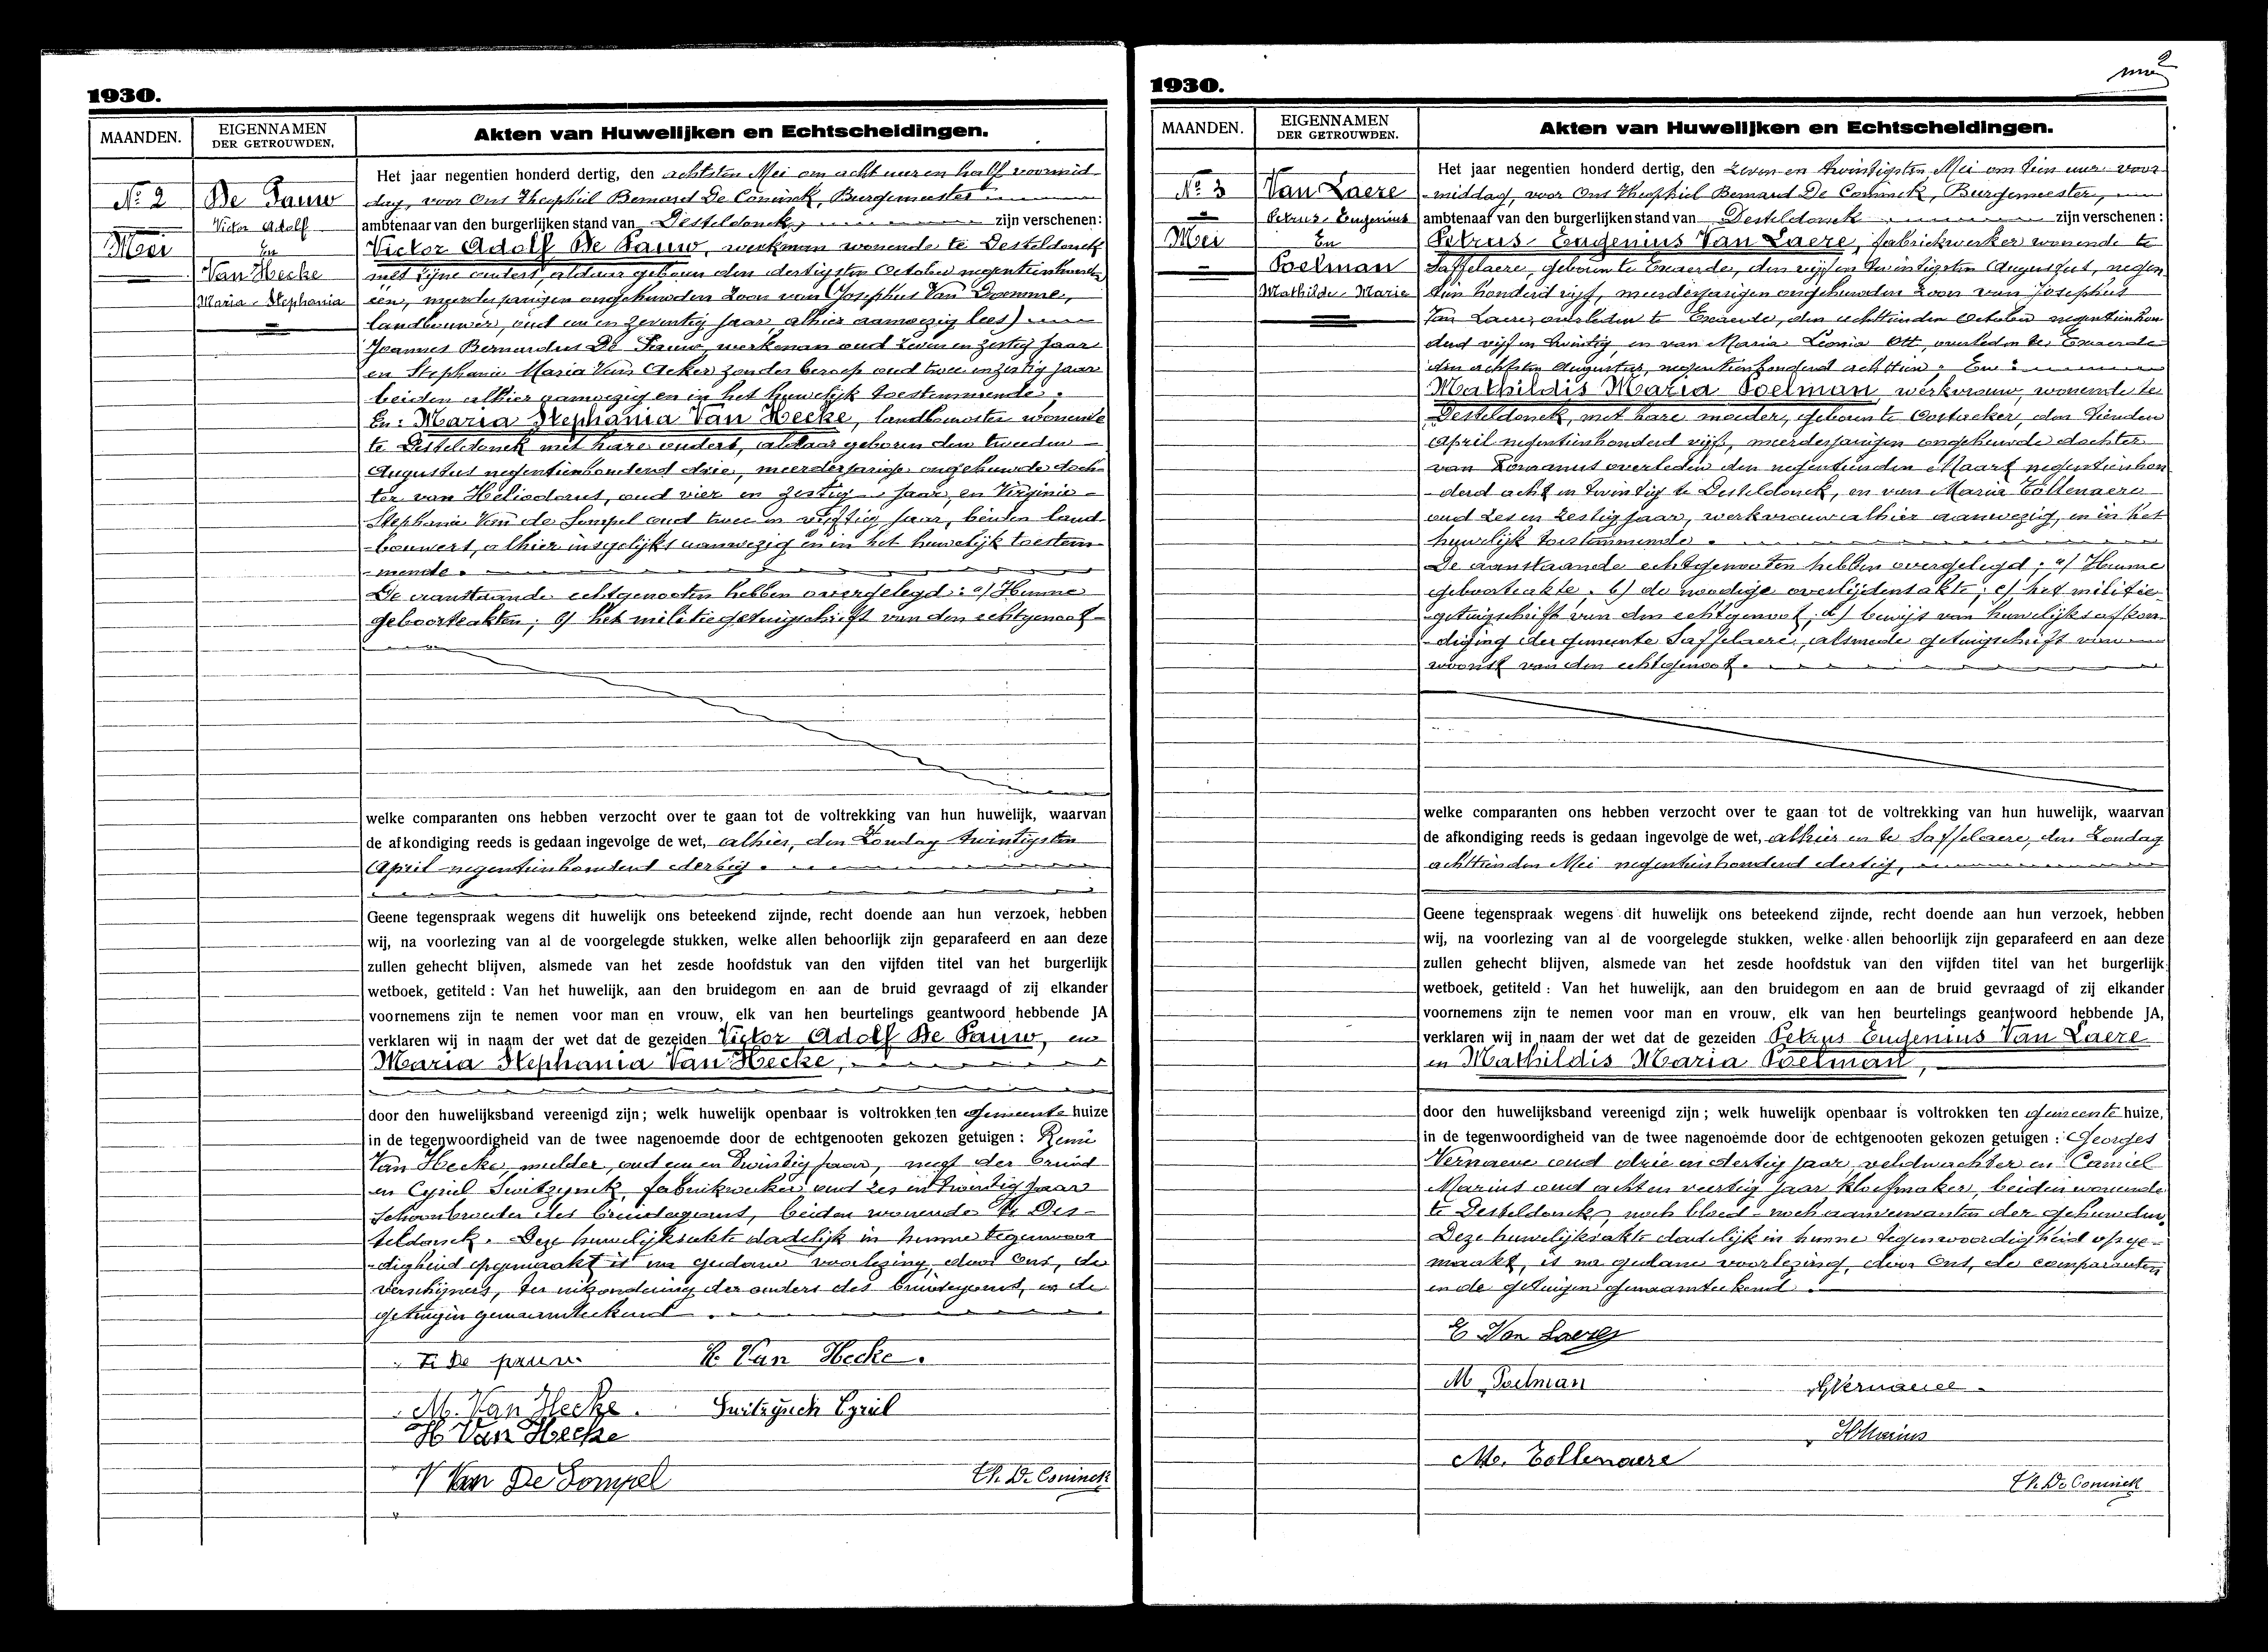 1930.
MAANDEN.
EIGENNAMEN
DER GETROUWDEN.
Akten van Huwelijken en Echtscheidingen.
No 2
Mei
De Pauw
Victor Adolf
En
Van Hecke
Maria Stephania
Het jaar negentien honderd dertig, den achtsten Mei om acht uur en half voormid-
dag, voor Ons Theophiel Bernard De Coninck, Burgemeester
ambtenaar van den burgerlijken stand van Desteldonck, zijn verschenen:
Victor Adolf De Pauw, werkman wonende te Desteldonck
met zijne ouders, aldaar geboren den dertigsten October negentienhonderd
een, meerderjarigen ongehuwden zoon van Josephus Van Damme,
landbouwer, oud een en zeventig jaar alhier aanwezig lees)
Joannes Bernardus De Pauw, werkman oud zeven en zestig jaar
en Stephanie Maria Van Acker zonder beroep oud twee en zestig jaar
beiden alhier aanwezig en in het huwelijk toestemmende.
En: Maria Stephania Van Hecke, landbouwster wonende
te Desteldonck met hare ouders, aldaar geboren den tweeden
Augustus negentienhonderd drie, meerderjarige ongehuwde doch-
ter van Heliodorus, oud vier en zestig jaar, en Virginie
Stephanie Van de Sompel oud twee en vijftig jaar, beiden land-
bouwers, alhier insgelijks aanwezig en in het huwelijk toestem-
mende.
De aanstaande echtgenooten hebben overgelegd: a) Hunne
geboorteakten; b) het militiegetuigschrift van den echtgenoot
welke comparanten ons hebben verzocht over te gaan tot de voltrekking van hun huwelijk, waarvan
de afkondiging reeds is gedaan ingevolge de wet, alhier, den Zondag twintigsten
April negentienhonderd dertig.
Geene tegenspraak wegens dit huwelijk ons beteekend zijnde, recht doende aan hun verzoek, hebben
wij, na voorlezing van al de voorgelegde stukken, welke allen behoorlijk zijn geparafeerd en aan deze
zullen gehecht blijven, alsmede van het zesde hoofdstuk van den vijfden titel van het burgerlijk
wetboek, getiteld: Van het huwelijk, aan den bruidegom en aan de bruid gevraagd of zij elkander
voornemens zijn te nemen voor man en vrouw, elk van hen beurtelings geantwoord hebbende JA
verklaren wij in naam der wet dat de gezeiden Victor Adolf De Pauw, en
Maria Stephania Van Hecke,
door den huwelijksband vereenigd zijn; welk huwelijk openbaar is voltrokken ten Gemeente huize
in de tegenwoordigheid van de twee nagenoemde door de echtgenooten gekozen getuigen: Remi
Van Hecke, mulder, oud een en twintig jaar, neef der bruid
en Cyriel Switzynck, fabriekwerker oud zes en twintig jaar
schoonbroeder des bruidegoms, beiden wonende te Des-
teldonck. Deze huwelijksakte dadelijk in hunne tegenwoor-
digheid opgemaakt is na gedane voorlezing, door Ons, de
verschijners, ter uitzondering der ouders des bruidegoms, en de
getuigen genaamteekend.
V. De pauw R. Van Hecke.
M. Van Hecke. Switzynck Cyriel
H Van Hecke
V Van De Sompel Th. De Coninck
1930.
2
MAANDEN.
EIGENNAMEN
DER GETROUWDEN.
Akten van Huwelijken en Echtscheidingen.
No 3
Mei
Van Laere
Petrus Eugenius
En
Poelman
Mathilde Marie
Het jaar negentien honderd dertig, den zeven en twintigsten Mei om tien uur voor-
middag, voor Ons Theophiel Bernard De Coninck, Burgemeester,
ambtenaar van den burgerlijken stand van Desteldonck zijn verschenen:
Petrus Eugenius Van Laere, fabriekwerker wonende te
Saffelaere, geboren te Exaerde, den vijf en twintigsten Augustus, negen
tien honderd vijf, meerderjarigen ongehuwden zoon van Josephus
Van Laere, overleden te Exaerde, den achttienden October negentienhon
derd vijf en twintig, en van Maria Leonia Ott, overleden te Exaerde
den achtsten Augustus, negentienhonderd achttien. En:
Mathildis Maria Poelman, werkvrouw, wonende te
Desteldonck, met hare moeder, geboren te Oostacker, den tienden
April negentienhonderd vijf, meerderjarigen ongehuwde dochter
van Romanus overleden den negentienden Maart negentienhon
derd acht en twintig te Desteldonck, en van Maria Tollenaere
oud zes en zestig jaar, werkvrouw alhier aanwezig, en in het
huwelijk toestemmende.
De aanstaande echtgenooten hebben overgelegd: a) Hunne
geboorteakte, b) de noodige overlijdensakte; c) het militie-
getuigschrift van den echtgenoot; d) bewijs van huwelijksafkon-
diging der gemeente Saffelaere, alsmede getuigschrift van
woonst van den echtgenoot.
welke comparanten ons hebben verzocht over te gaan tot de voltrekking van hun huwelijk, waarvan
de afkondiging reeds is gedaan ingevolge de wet, alhier en te Saffelaere, den Zondag
achttienden Mei negentienhonderd dertig,
Geene tegenspraak wegens dit huwelijk ons beteekend zijnde, recht doende aan hun verzoek, hebben
wij, na voorlezing van al de voorgelegde stukken, welke allen behoorlijk zijn geparafeerd en aan deze
zullen gehecht blijven, alsmede van het zesde hoofdstuk van den vijfden titel van het burgerlijk
wetboek, getiteld: Van het huwelijk, aan den bruidegom en aan de bruid gevraagd of zij elkander
voornemens zijn te nemen voor man en vrouw, elk van hen beurtelings geantwoord hebbende JA,
verklaren wij in naam der wet dat de gezeiden Petrus Eugenius Van Laere
en Mathildis Maria Poelman,
door den huwelijksband vereenigd zijn; welk huwelijk openbaar is voltrokken ten Gemeente huize,
in de tegenwoordigheid van de twee nagenoemde door de echtgenooten gekozen getuigen: Georges
Vernaeve oud drie en dertig jaar veldwachter en Camiel
Marius oud acht en veertig jaar kloefmaker, beiden wonende
te Desteldonck, noch bloed- noch aanverwanten der gehuwden.
Deze huwelijksakte dadelijk in hunne tegenwoordigheid opge-
maakt, is na gedane voorlezing, door Ons, de comparanten
en de getuigen genaamteekend.
E Van Laere
M Poelman GVernaeve
Marius
Me. Tollenaere
Th. De Coninck